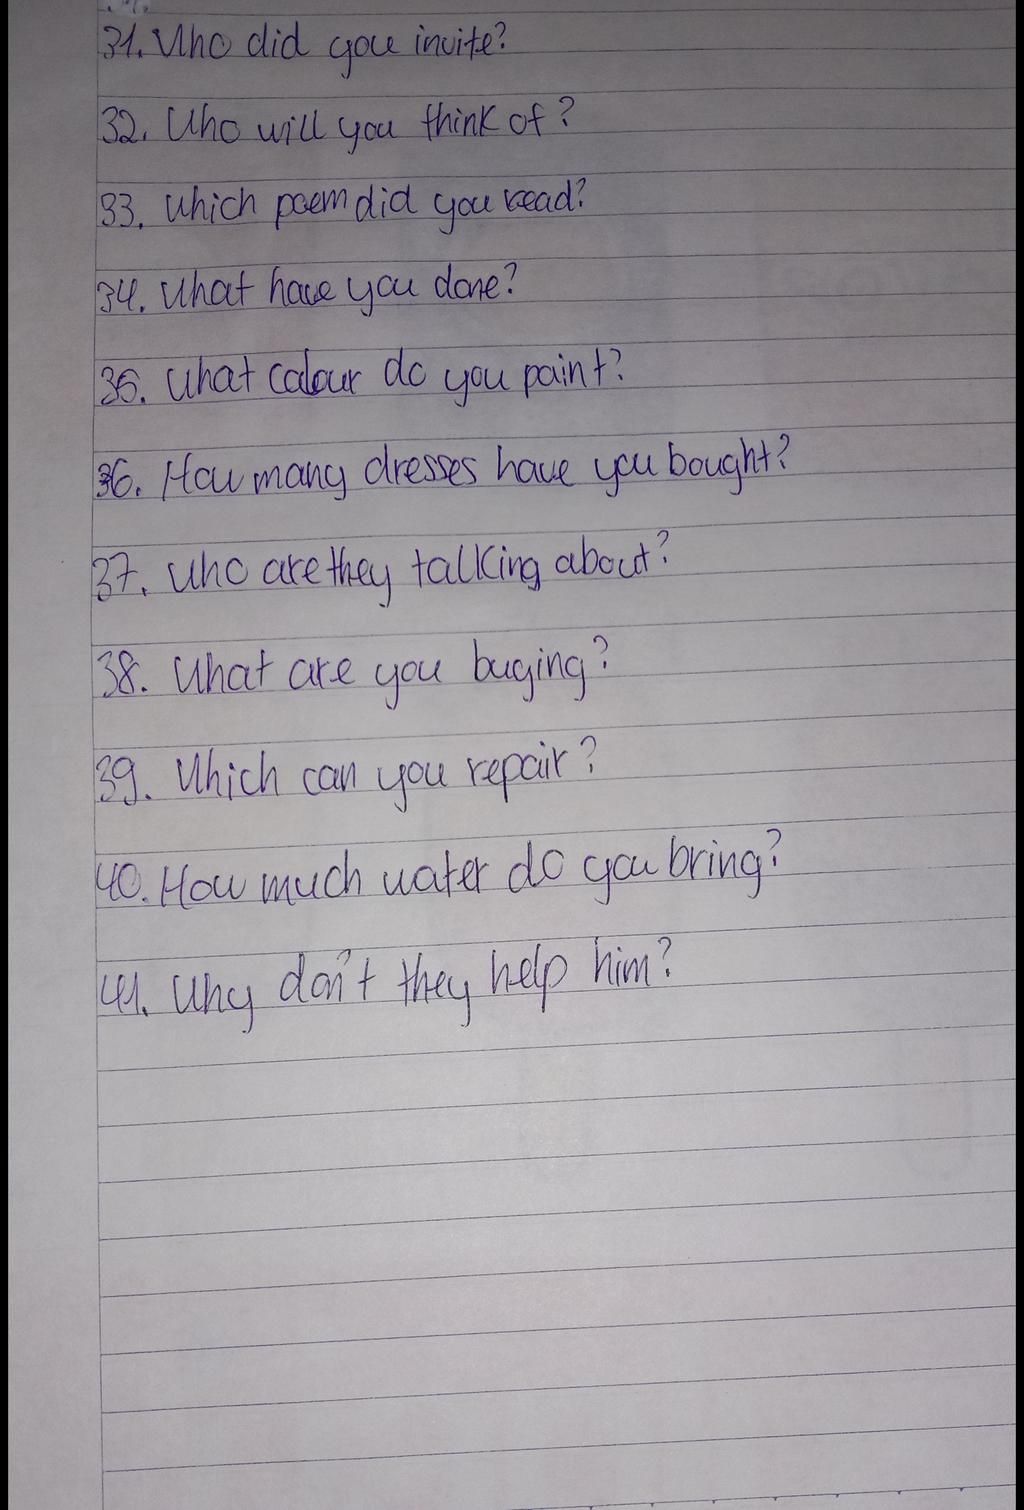 31. Who did you invite?
32. Who will you think of?
33. Which poem did you read?
34. What have you done?
35. What colour do you paint?
36. How many dresses have you bought?
37. Who are they talking about?
38. What are you buying?
39. Which can you repair?
40. How much water do you bring?
41. Why don't they help him?